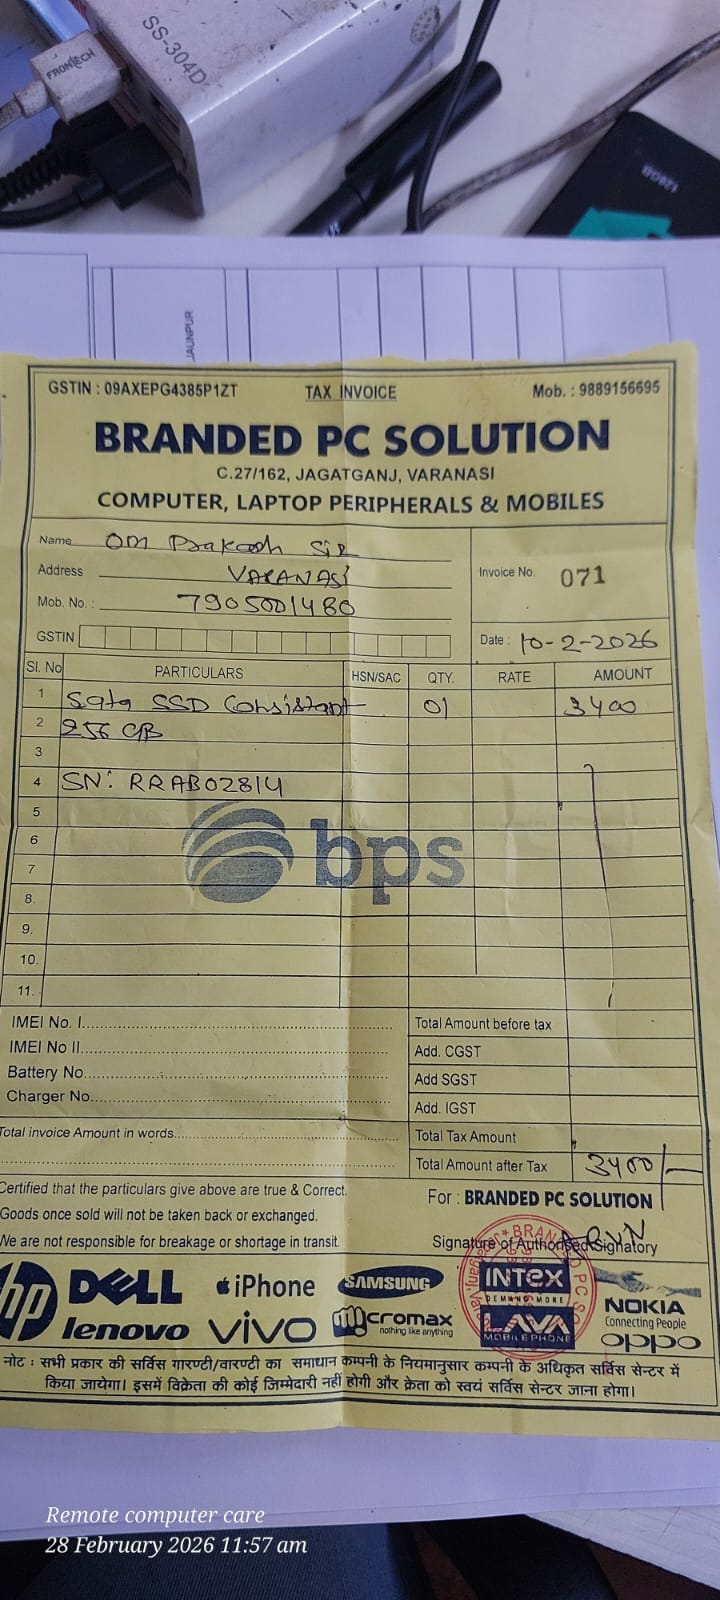 FRONTECH
SS-304D
128GB
JAUNPUR
GSTIN : 09AXEPG4385P1ZT TAX INVOICE Mob. : 9889156695
BRANDED PC SOLUTION
C.27/162, JAGATGANJ, VARANASI
COMPUTER, LAPTOP PERIPHERALS & MOBILES
Name Om Prakash Sir
Address VARANASI
Mob. No. : 7905001480
Invoice No. 071
GSTIN
Date : 10-2-2026
Sl. No PARTICULARS HSN/SAC QTY. RATE AMOUNT
1 Sata SSD Consistant 01 3400
2 256 GB
3
4 SN: RRAB02814
5
6
7
8.
9.
10.
11.
bps
IMEI No. I
IMEI No II
Battery No
Charger No
Total Amount before tax
Add. CGST
Add SGST
Add. IGST
Total invoice Amount in words
Total Tax Amount
Total Amount after Tax 3400/-
Certified that the particulars give above are true & Correct.
Goods once sold will not be taken back or exchanged.
We are not responsible for breakage or shortage in transit.
For : BRANDED PC SOLUTION
Signature of Authorised Signatory
hp DELL iPhone SAMSUNG INTEX NOKIA
DEMAND MORE
Connecting People
lenovo vivo Micromax LAVA oppo
nothing like anything
MOBILE PHONE
नोट : सभी प्रकार की सर्विस गारण्टी/वारण्टी का समाधान कम्पनी के नियमानुसार कम्पनी के अधिकृत सर्विस सेन्टर में
किया जायेगा। इसमें विक्रेता की कोई जिम्मेदारी नहीं होगी और क्रेता को स्वयं सर्विस सेन्टर जाना होगा।
Remote computer care
28 February 2026 11:57 am